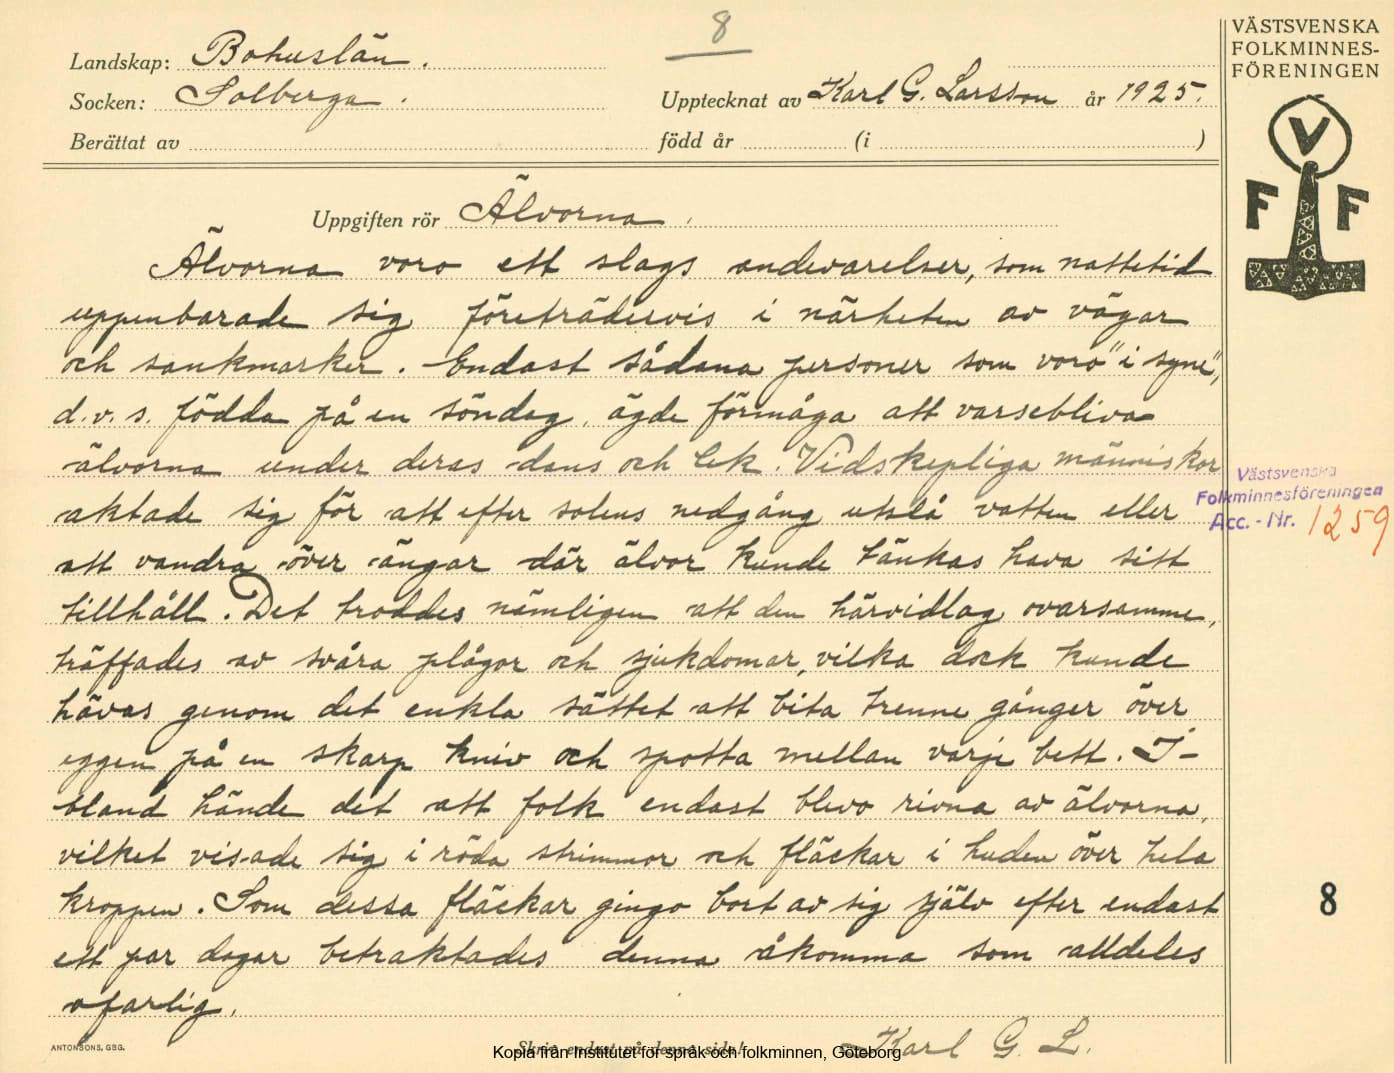 8
VÄSTSVENSKA
FOLKMINNES-
FÖRENINGEN
Landskap: Bohuslän.
Socken: Solberga.
Upptecknat av Karl G. Larsson år 1925.
Berättat av född år (i )
V
F F
Uppgiften rör Älvorna.
Älvorna voro ett slags andevarelser, som nattetid
uppenbarade sig företrädesvis i närheten av vägar
och sankmarker. Endast sådana personer som voro "i syne",
d.v.s. födda på en söndag, ägde förmåga att varsebliva
älvorna under deras dans och lek. Vidskepliga människor
aktade sig för att efter solens nedgång utslå vatten eller
att vandra över ängar där älvor kunde tänkas hava sitt
tillhåll. Det troddes nämligen att den härvidlag ovarsamme,
träffades av svåra plågor och sjukdomar, vilka dock kunde
hävas genom det enkla sättet att bita trenne gånger över
eggen på en skarp kniv och spotta mellan varje bett. I-
bland hände det att folk endast blevo rivna av älvorna,
vilket visade sig i röda strimmor och fläckar i huden över hela
kroppen. Som dessa fläckar gingo bort av sig själv efter endast
ett par dagar betraktades denna åkomma som alldeles
ofarlig.
Karl G. L.
Västsvenska
Folkminnesföreningen
Acc. - Nr. 1259
8
ANTONSONS, GBG.
Skriv endast på denna sida!
Kopia från Institutet för språk och folkminnen, Göteborg